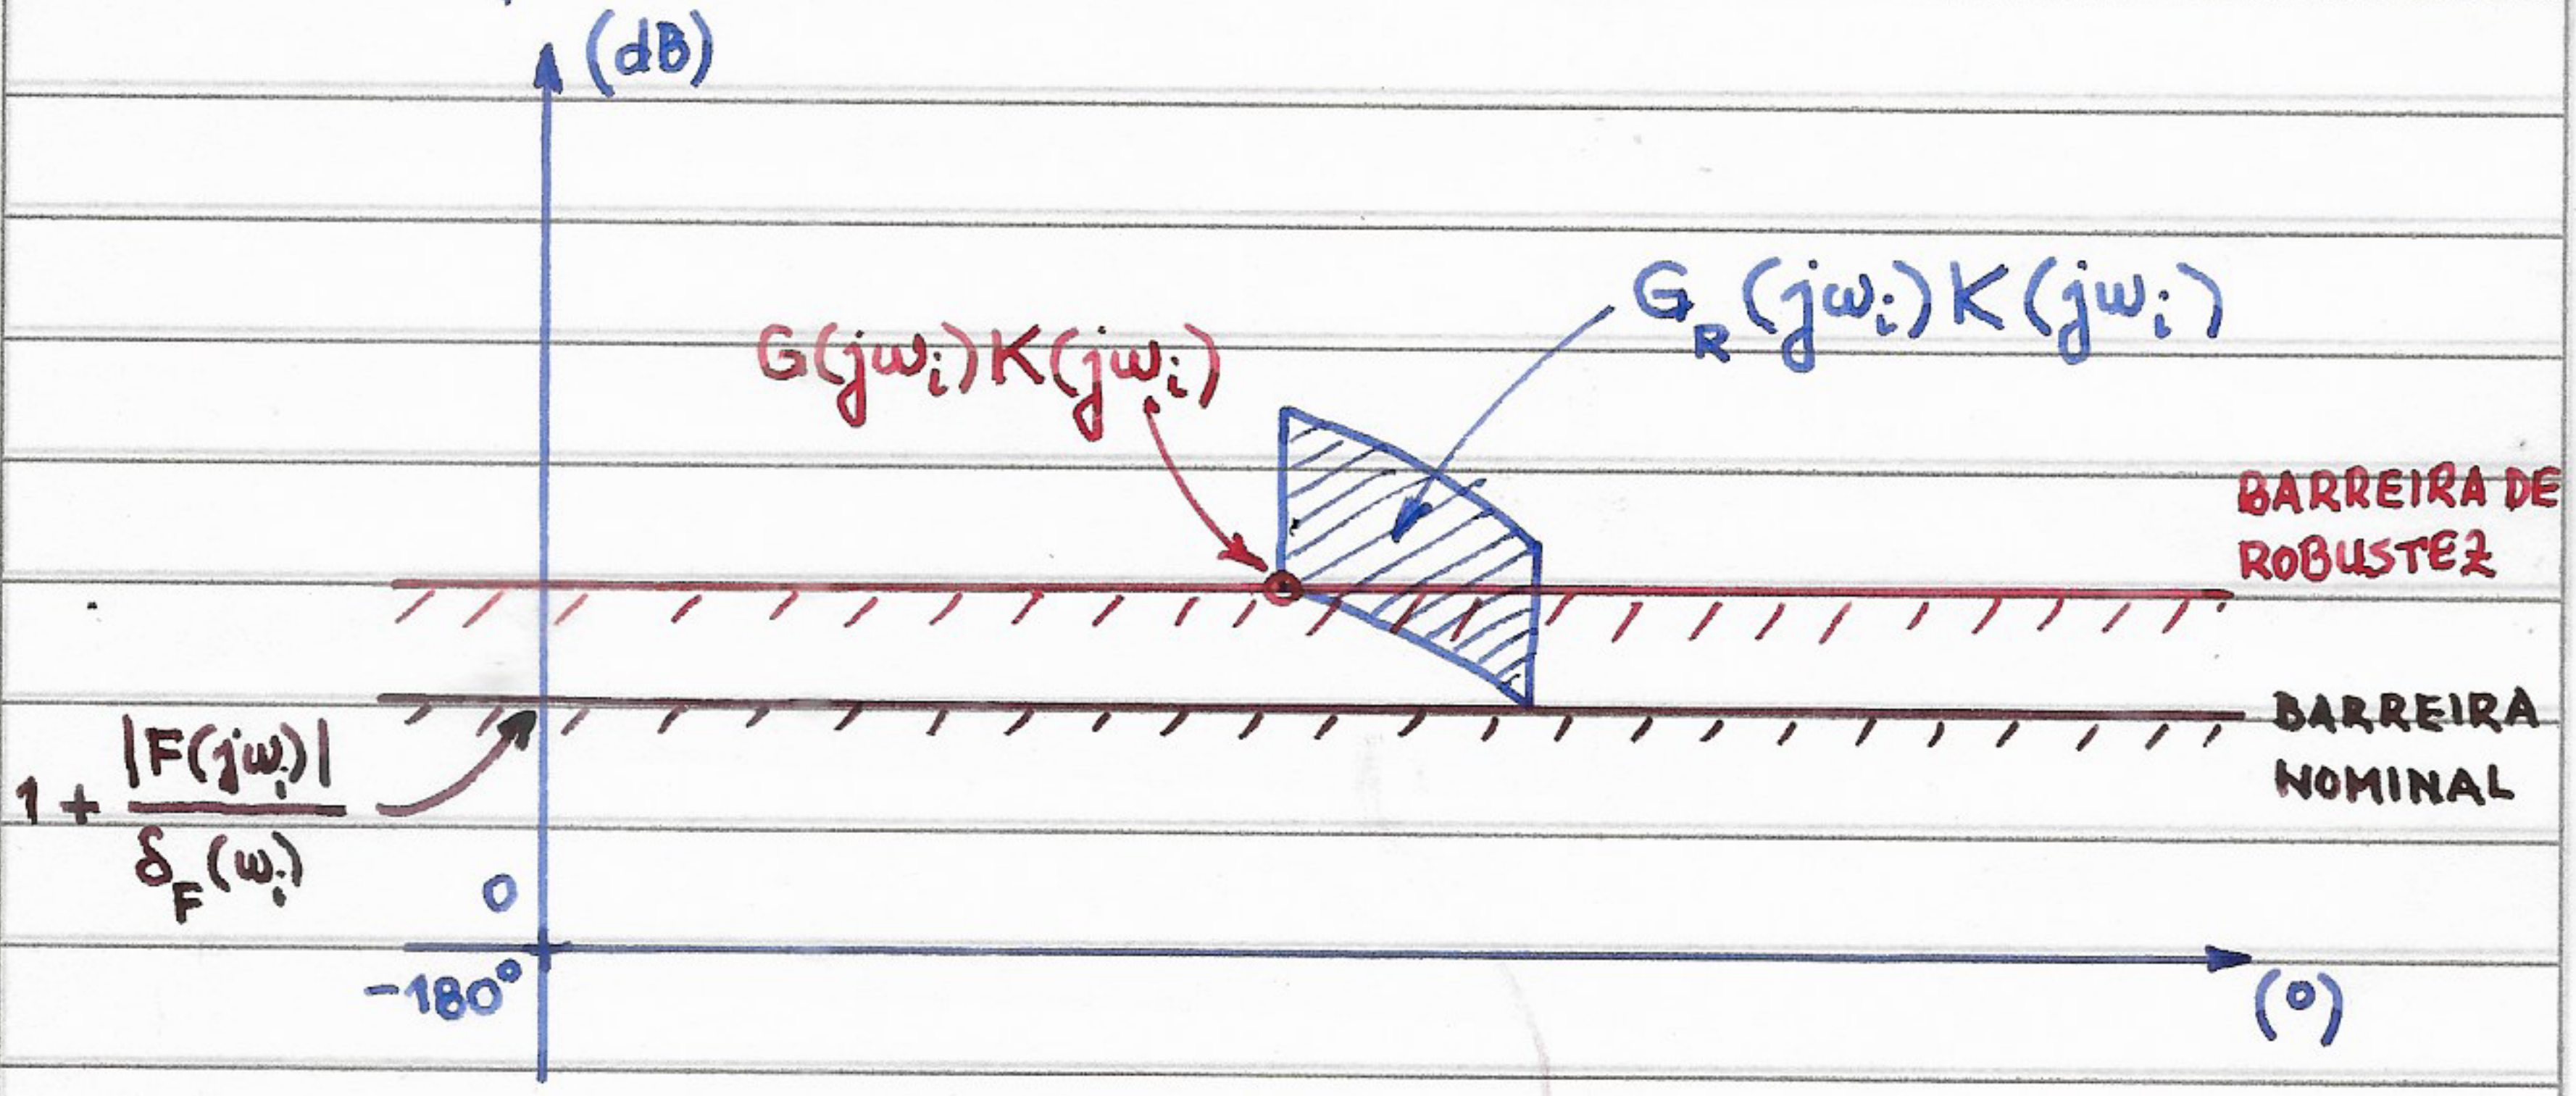 (dB)
G_R(jω_i)K(jω_i)
G(jω_i)K(jω_i)
BARREIRA DE
ROBUSTEZ
BARREIRA
NOMINAL
1 + |F(jω_i)| / δ_F(ω_i)
0
-180°
(°)